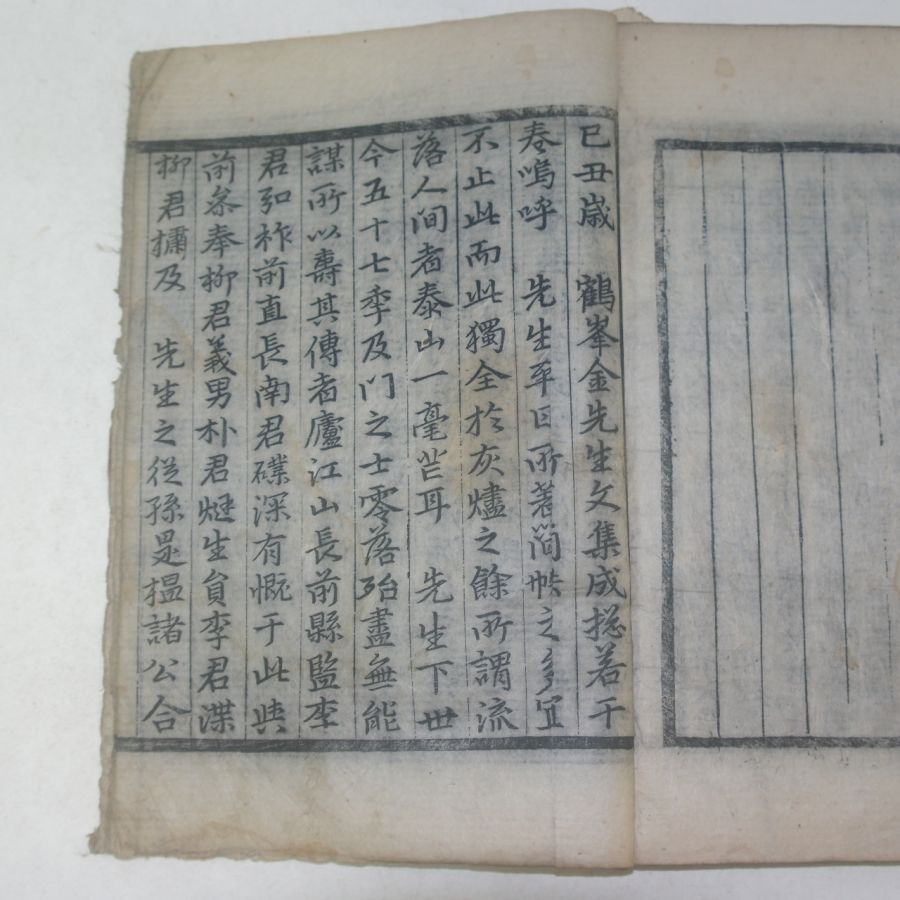 己丑歲　鶴峯金先生文集成揔若干
卷嗚呼　先生平日所著簡帙之多宜
不止此而此獨全於灰燼之餘所謂流
落人间者泰山一毫芒耳　先生下世
今五十七季及门之士零落殆盡無能
謀所以壽其傳者廬江山長前縣監李
君弘祚前直長南君礏深有慨于此與
前叅奉柳君義男朴君𤈒生負李君渫
柳君㰒及　先生之從孫是榅諸公合